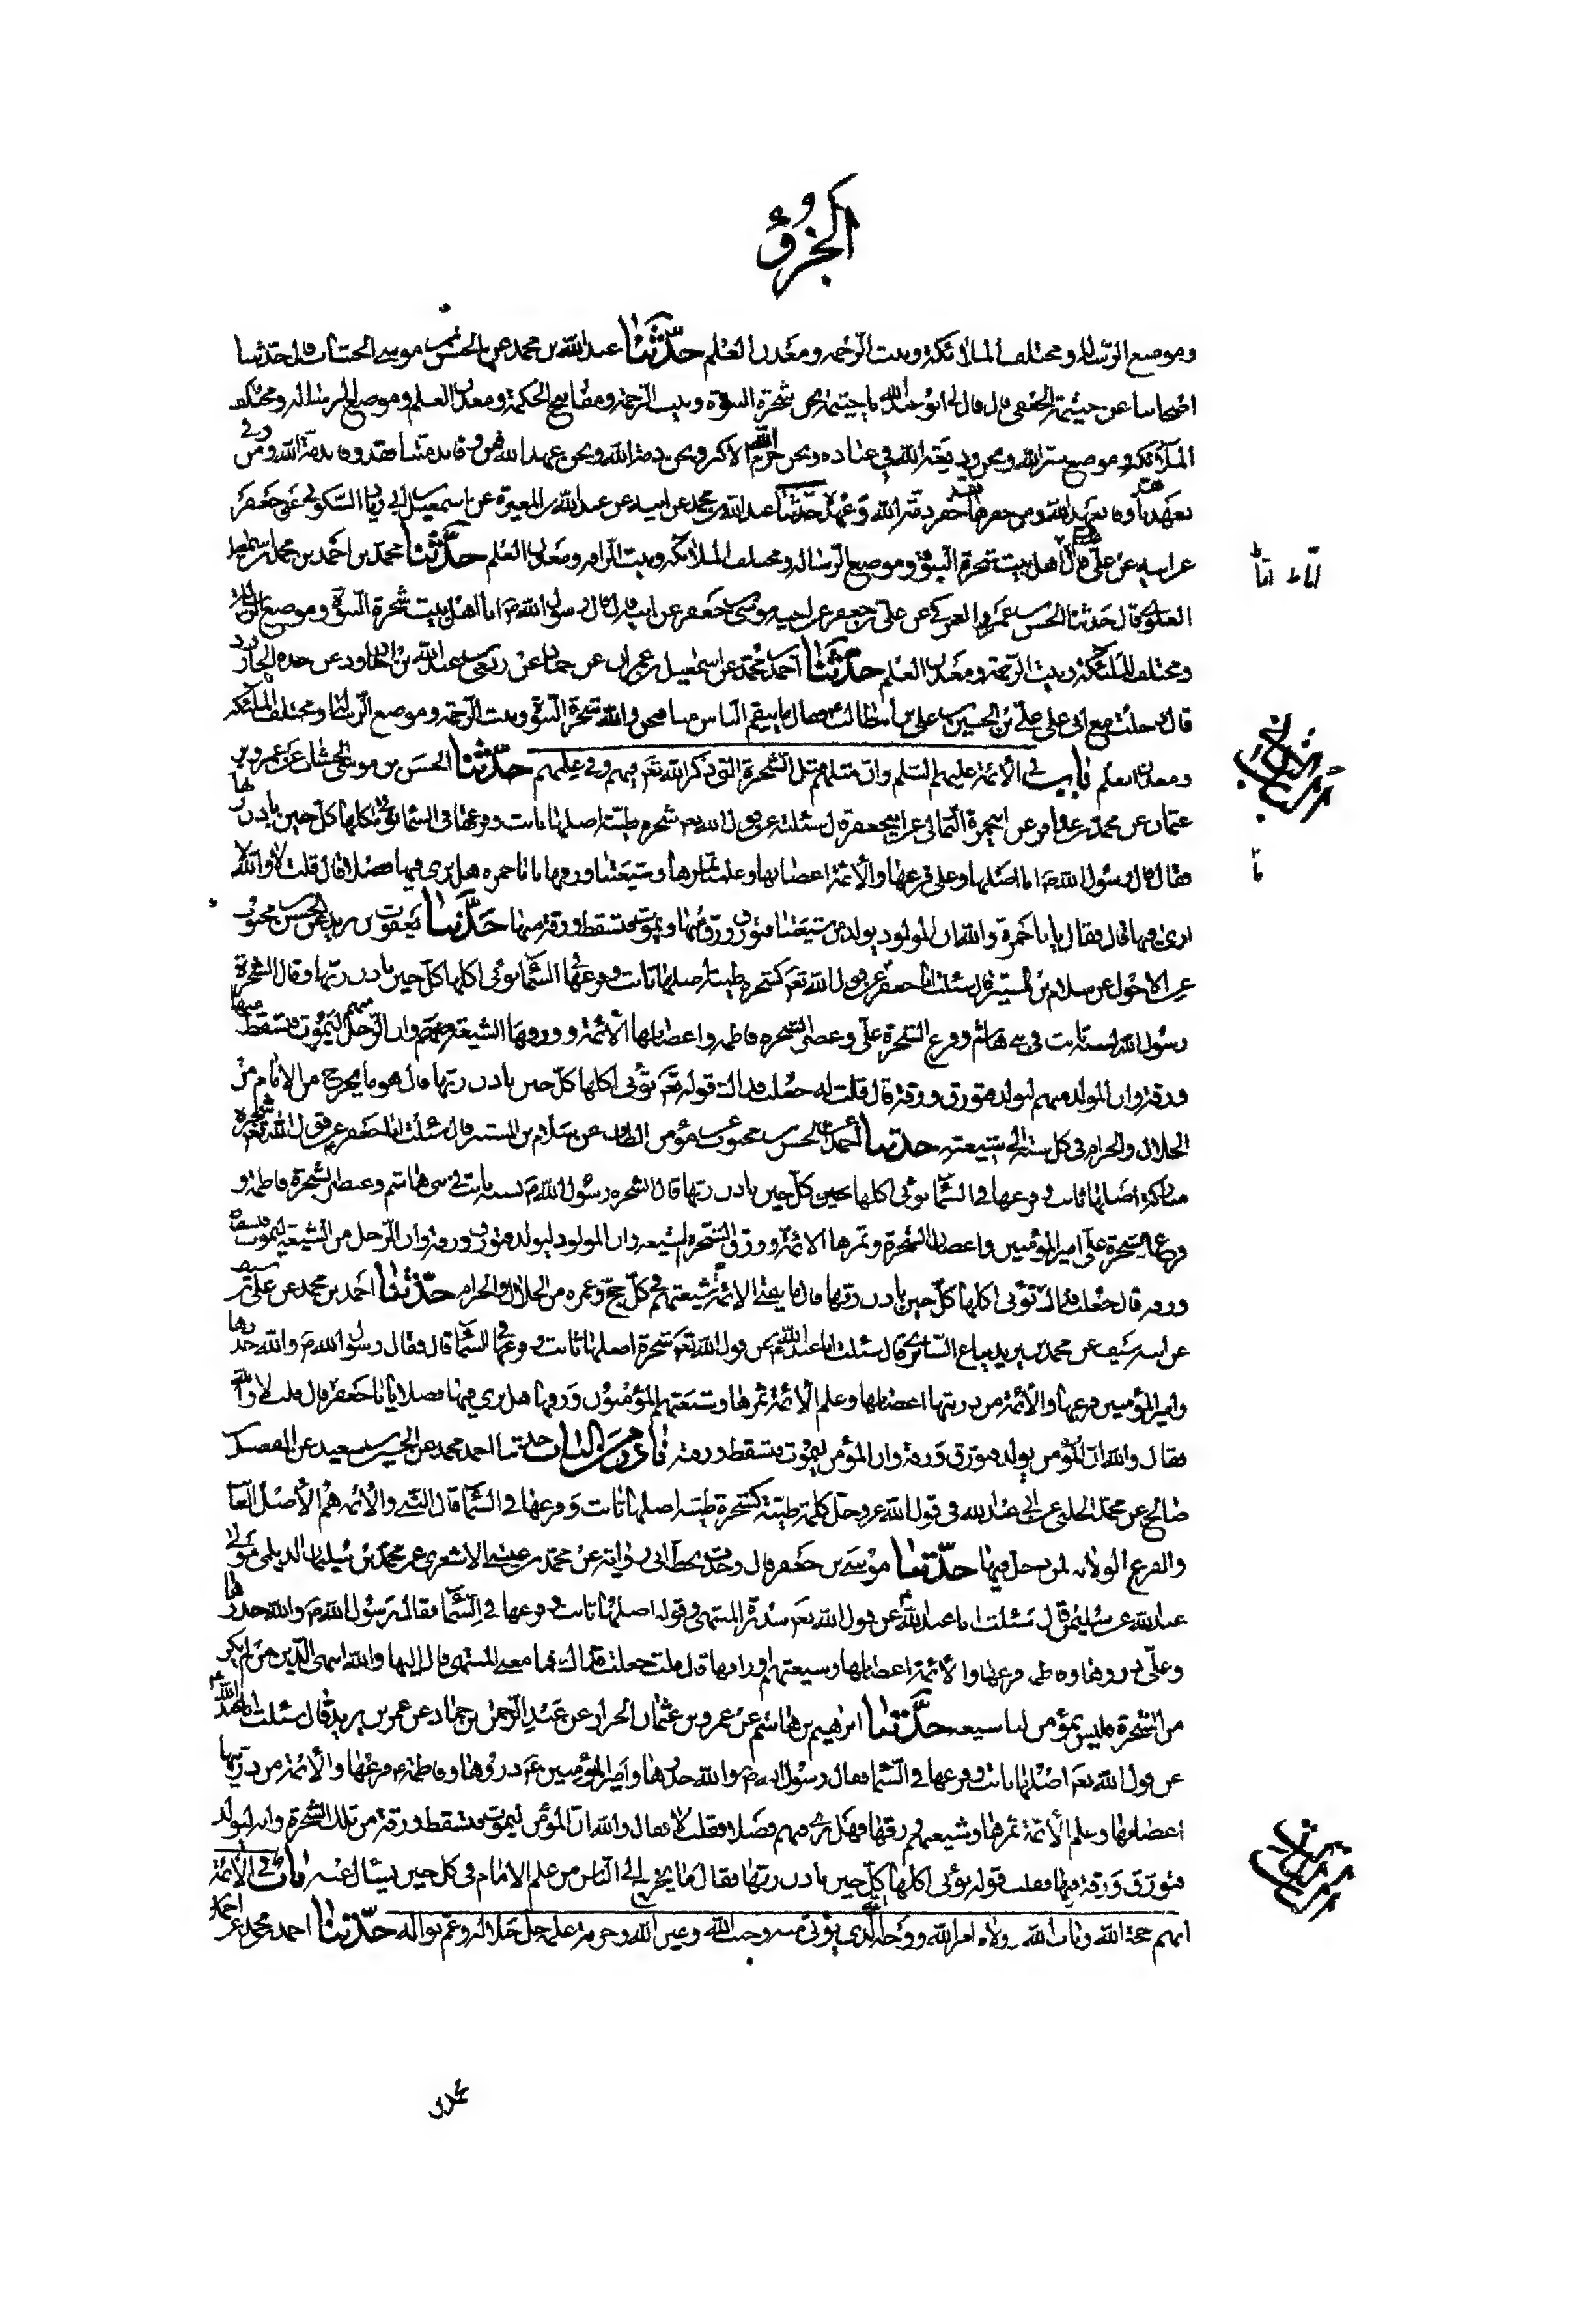 الجزؤ
وموضع الرسالة ومختلف الملائكة وبيت الرحمة ومعدن العلم حدثنا عبد الله بن محمد عن الحسن بن موسى الخشاب قال حدثنا
اصحابنا عن خيثمة الجعفى قال قال لى ابو عبد الله يا خيثمة نحن شجرة النبوة وبيت الرحمة ومفاتيح الحكمة ومعدن العلم وموضع الرسالة ومختلف
الملائكة وموضع سر الله ونحن وديعة الله في عباده ونحن حرم الله الاكبر ونحن ذمة الله ونحن عهد الله فمن وفا بذمتنا فقد وفا بذمة الله ومن وفى
بعهدنا وفا بعهد الله ومن خفرها خفر ذمة الله وعهده حدثنا عبد الله بن محمد عن ابيه عن عبد الله بن المغيرة عن اسمعيل بن ابى زياد السكونى عن جعفر
عن ابيه عن على قال انا اهل بيت شجرة النبوة وموضع الرسالة ومختلف الملائكة وبيت الرافة ومعدن العلم حدثنا محمد بن احمد بن محمد بن اسمعيل
العلوى قال حدثنا الحسن بن عمر والعمركى عن على بن جعفر عن اخيه موسى بن جعفر عن ابيه قال قال رسول الله ص انا اهل بيت شجرة النبوة وموضع الرسالة
ومختلف الملئكة وبيت الرحمة ومعدن العلم حدثنا احمد بن محمد عن اسمعيل بن عمران عن حماد عن ربعى بن عبد الله بن الجارود عن جده الجارود
قال دخلت مع ابى على على بن الحسين بن على بن ابيطالب فقال ما ينقم الناس منا فنحن والله شجرة النبوة وبيت الرحمة وموضع الرسالة ومختلف الملئكة
ومعدن العلم باب في الأئمة عليهم السلم وان مثلهم مثل الشجرة التى ذكر الله تعم فيهم وفى علمهم حدثنا الحسن بن موسى الخشاب عن عمرو بن
عثمان عن محمد بن عذافر عن ابيحمزة الثمالى عن ابيجعفر قال سئلته عن قول الله تعم شجرة طيبة اصلها ثابت وفرعها فى السماء تؤتى اكلها كل حين باذن ربها
فقال قال رسول الله ص انا اصلها وعلى فرعها والأئمة اغصانها وعلمنا ثمرها وشيعتنا ورقها يا با حمزة هل ترى فيها فضلا قال قلت لا والله لا
ارى فيها قال فقال يا با حمزة والله ان المولود يولد من شيعتنا فتورق ورقة منها ويموت فتسقط ورقة منها حدثنا يعقوب بن يزيد عن الحسن بن محبوب
عن الاحول عن سلام بن المستنير قال سئلت ابا جعفر عن قول الله تعم كشجرة طيبة اصلها ثابت وفرعها في السماء تؤتى اكلها كل حين باذن ربها وقال الشجرة
رسول الله نسبه ثابت فى بنى هاشم وفرع الشجرة على وعنصر الشجرة فاطمه واغصانها الأئمة وورقها الشيعة وان الرجل منهم ليموت فتسقط منها
ورقة وان المولد منهم ليولد فتورق ورقة قال قلت له جعلت فداك قوله تعم تؤتى اكلها كل حين باذن ربها قال هو ما يخرج من الامام من
الحلال والحرام فى كل سنة الى شيعته حدثنا احمد عن الحسن بن محبوب عن مؤمن الطاق عن سلام بن المستنير قال سئلت ابا جعفر عن قول الله تعم كشجرة
مباركة اصلها ثابت وفرعها في السماء تؤتى اكلها كل حين باذن ربها قال الشجرة رسول الله ص نسبه ثابت فى بنى هاشم وعنصر الشجرة فاطمه و
فرع الشجرة على امير المؤمنين واغصان الشجرة وثمرها الائمة وورق الشجرة الشيعه وان المولود ليولد فتورق ورقة وان الرجل من الشيعة ليموت فتسقط
ورقه قال جعلت فداك تؤتى اكلها كل حين باذن ربها قال ما يفتى الائمة شيعتهم في كل حج وعمره من الحلال والحرام حدثنا احمد بن محمد عن على بن سيف
عن ابيه سيف عن محمد بن يزيد بياع السابرى قال سئلت ابا عبد الله عن قول الله تعم شجرة اصلها ثابت وفرعها في السماء قال فقال رسول الله ص والله جذرها
وامير المؤمنين فرعها والأئمة من ذريتها اغصانها وعلم الأئمة ثمرها وشيعتهم المؤمنون ورقها هل ترى فيها فضلا يا با جعفر قال قلت لا والله
فقال والله ان المؤمن يولد فتورق ورقة وان المؤمن يموت فتسقط ورقة نادر من الباب حدثنا احمد بن محمد عن الحسين بن سعيد عن المفضل بن
صالح عن محمد الحلبى عن ابى عبد الله فى قول الله عز وجل كلمة طيبة كشجرة طيبة اصلها ثابت وفرعها في السماء قال النبى والأئمة هم الأصل الثابت
والفرع الولاية لمن دخل فيها حدثنا موسى بن جعفر قال وجدت بخط ابى رواية عن محمد بن عيسى الاشعرى عن محمد بن سليمان الديلمى مولى
عبد الله عن سليمن قال سئلت ابا عبد الله عن قول الله تعم سدرة المنتهى وقوله اصلها ثابت وفرعها في السماء فقال رسول الله ص والله جذرها
وعلى ذروها وفاطمة فرعها والأئمة اغصانها وشيعتهم اوراقها قال قلت جعلت فداك فما معنى المنتهى قال اليها والله انتهى الدين من لم يكن
من الشجرة فليس بمؤمن لنا شيعه حدثنا ابراهيم بن هاشم عن عمرو بن عثمان الخزاز عن عبد الرحمن بن حماد عن عمر بن يزيد قال سئلت ابا عبد الله
عن قول الله تعم اصلها ثابت وفرعها في السماء فقال رسول الله ص والله جذرها وامير المؤمنين ع ذروها وفاطمة ع فرعها والأئمة من ذريتها
اغصانها وعلم الأئمة ثمرها وشيعتهم ورقها فهل ترى فيهم فضلا فقلت لا فقال والله ان المؤمن ليموت فتسقط ورقة من تلك الشجرة وانه ليولد
فتورق ورقة فيها فقلت قوله تؤتى اكلها كل حين باذن ربها فقال ما يخرج الى الناس من علم الامام فى كل حين يسئال عنه باب في الأئمة
انهم حجة الله وباب الله وولاة امر الله ووجه الله الذى يؤتى منه وجنب الله وعين الله وخزنة علمه جل جلاله وعم نواله حدثنا احمد بن محمد عن